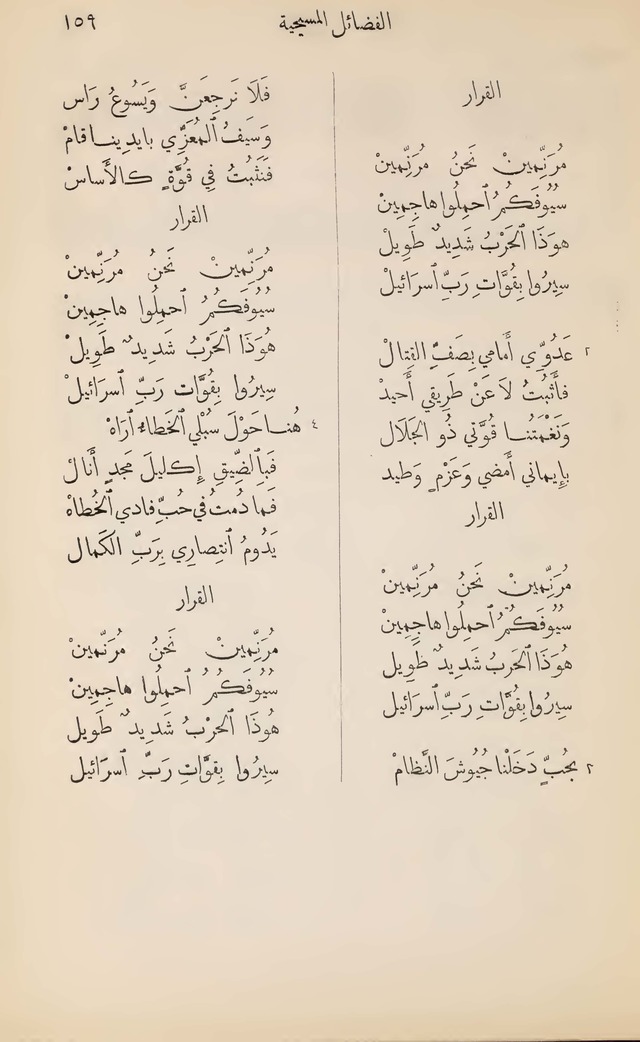 الفضائل المسيحية ١٥٩
القرار
مُرَنِّمِينْ نَحْنُ مُرَنِّمِينْ
سُيُوفَكُمُ ٱحمِلُوا هاجِمِينْ
هوَذَا الحَرْبُ شَدِيدٌ طَوِيلْ
سِيرُوا بِقُوَّاتِ رَبِّ ٱسرَائيلْ
٢ عَدُوِّي أَمَامي بِصَفِّ القِتالْ
فأَثبُتُ لاَ عَنْ طَرِيقي أَحيدْ
وَنَغْمَتُنا قُوَّتي ذُو الجَلَال
بِإِيماني أَمضي وَعَزْمٍ وَطيد
القرار
مُرَنِّمِينْ نَحنُ مُرَنِّمِينْ
سيُوفَكُمُ ٱحمِلُوا هاجِمِينْ
هُوَذَا الحَربُ شَدِيدٌ طَوِيل
سِيرُوا بِقُوَّاتِ رَبِّ ٱسرَائيل
٣ بِحُبٍّ دَخَلْنا جُيُوشَ النَّظامْ
فَلَا نَرجِعَنَّ وَيَسُوعُ رَاس
وَسَيفُ ٱلمُعَزِّي بايدِينا قامْ
فَنَثبُتُ فِي قُوَّةٍ كالأَساسْ
القرار
مُرَنِّمِينْ نَحَنُ مُرَنِّمِينْ
سُيُوفَكُمُ ٱحمِلُوا هاجِمِينْ
هُوَذَا ٱلحَربُ شَدِيدٌ طَوِيلْ
سِيرُوا بِقُوَّاتِ رَبِّ ٱسرَائيلْ
٤ هُنا حَوْلَ سُبُلِي ٱلخَطاءُ أرَاهْ
فَبِٱلضِّيقِ إِكلِيلَ مَجدٍ أَنالْ
فَما دُمتُ في حُبِّ فادي ٱلخُطاهْ
يَدُومُ ٱنتِصارِي بِرَبِّ الكَمال
القرار
مُرَنِّمِينْ نَحنُ مُرَنّمينْ
سُيُوفَكُمُ ٱحمِلُوا هاجِمِينْ
هُوَذَا ٱلحَرْبُ شَدِيدٌ طَويل
سِيرُوا بِقوَّاتِ رَبِّ ٱسرَائيل